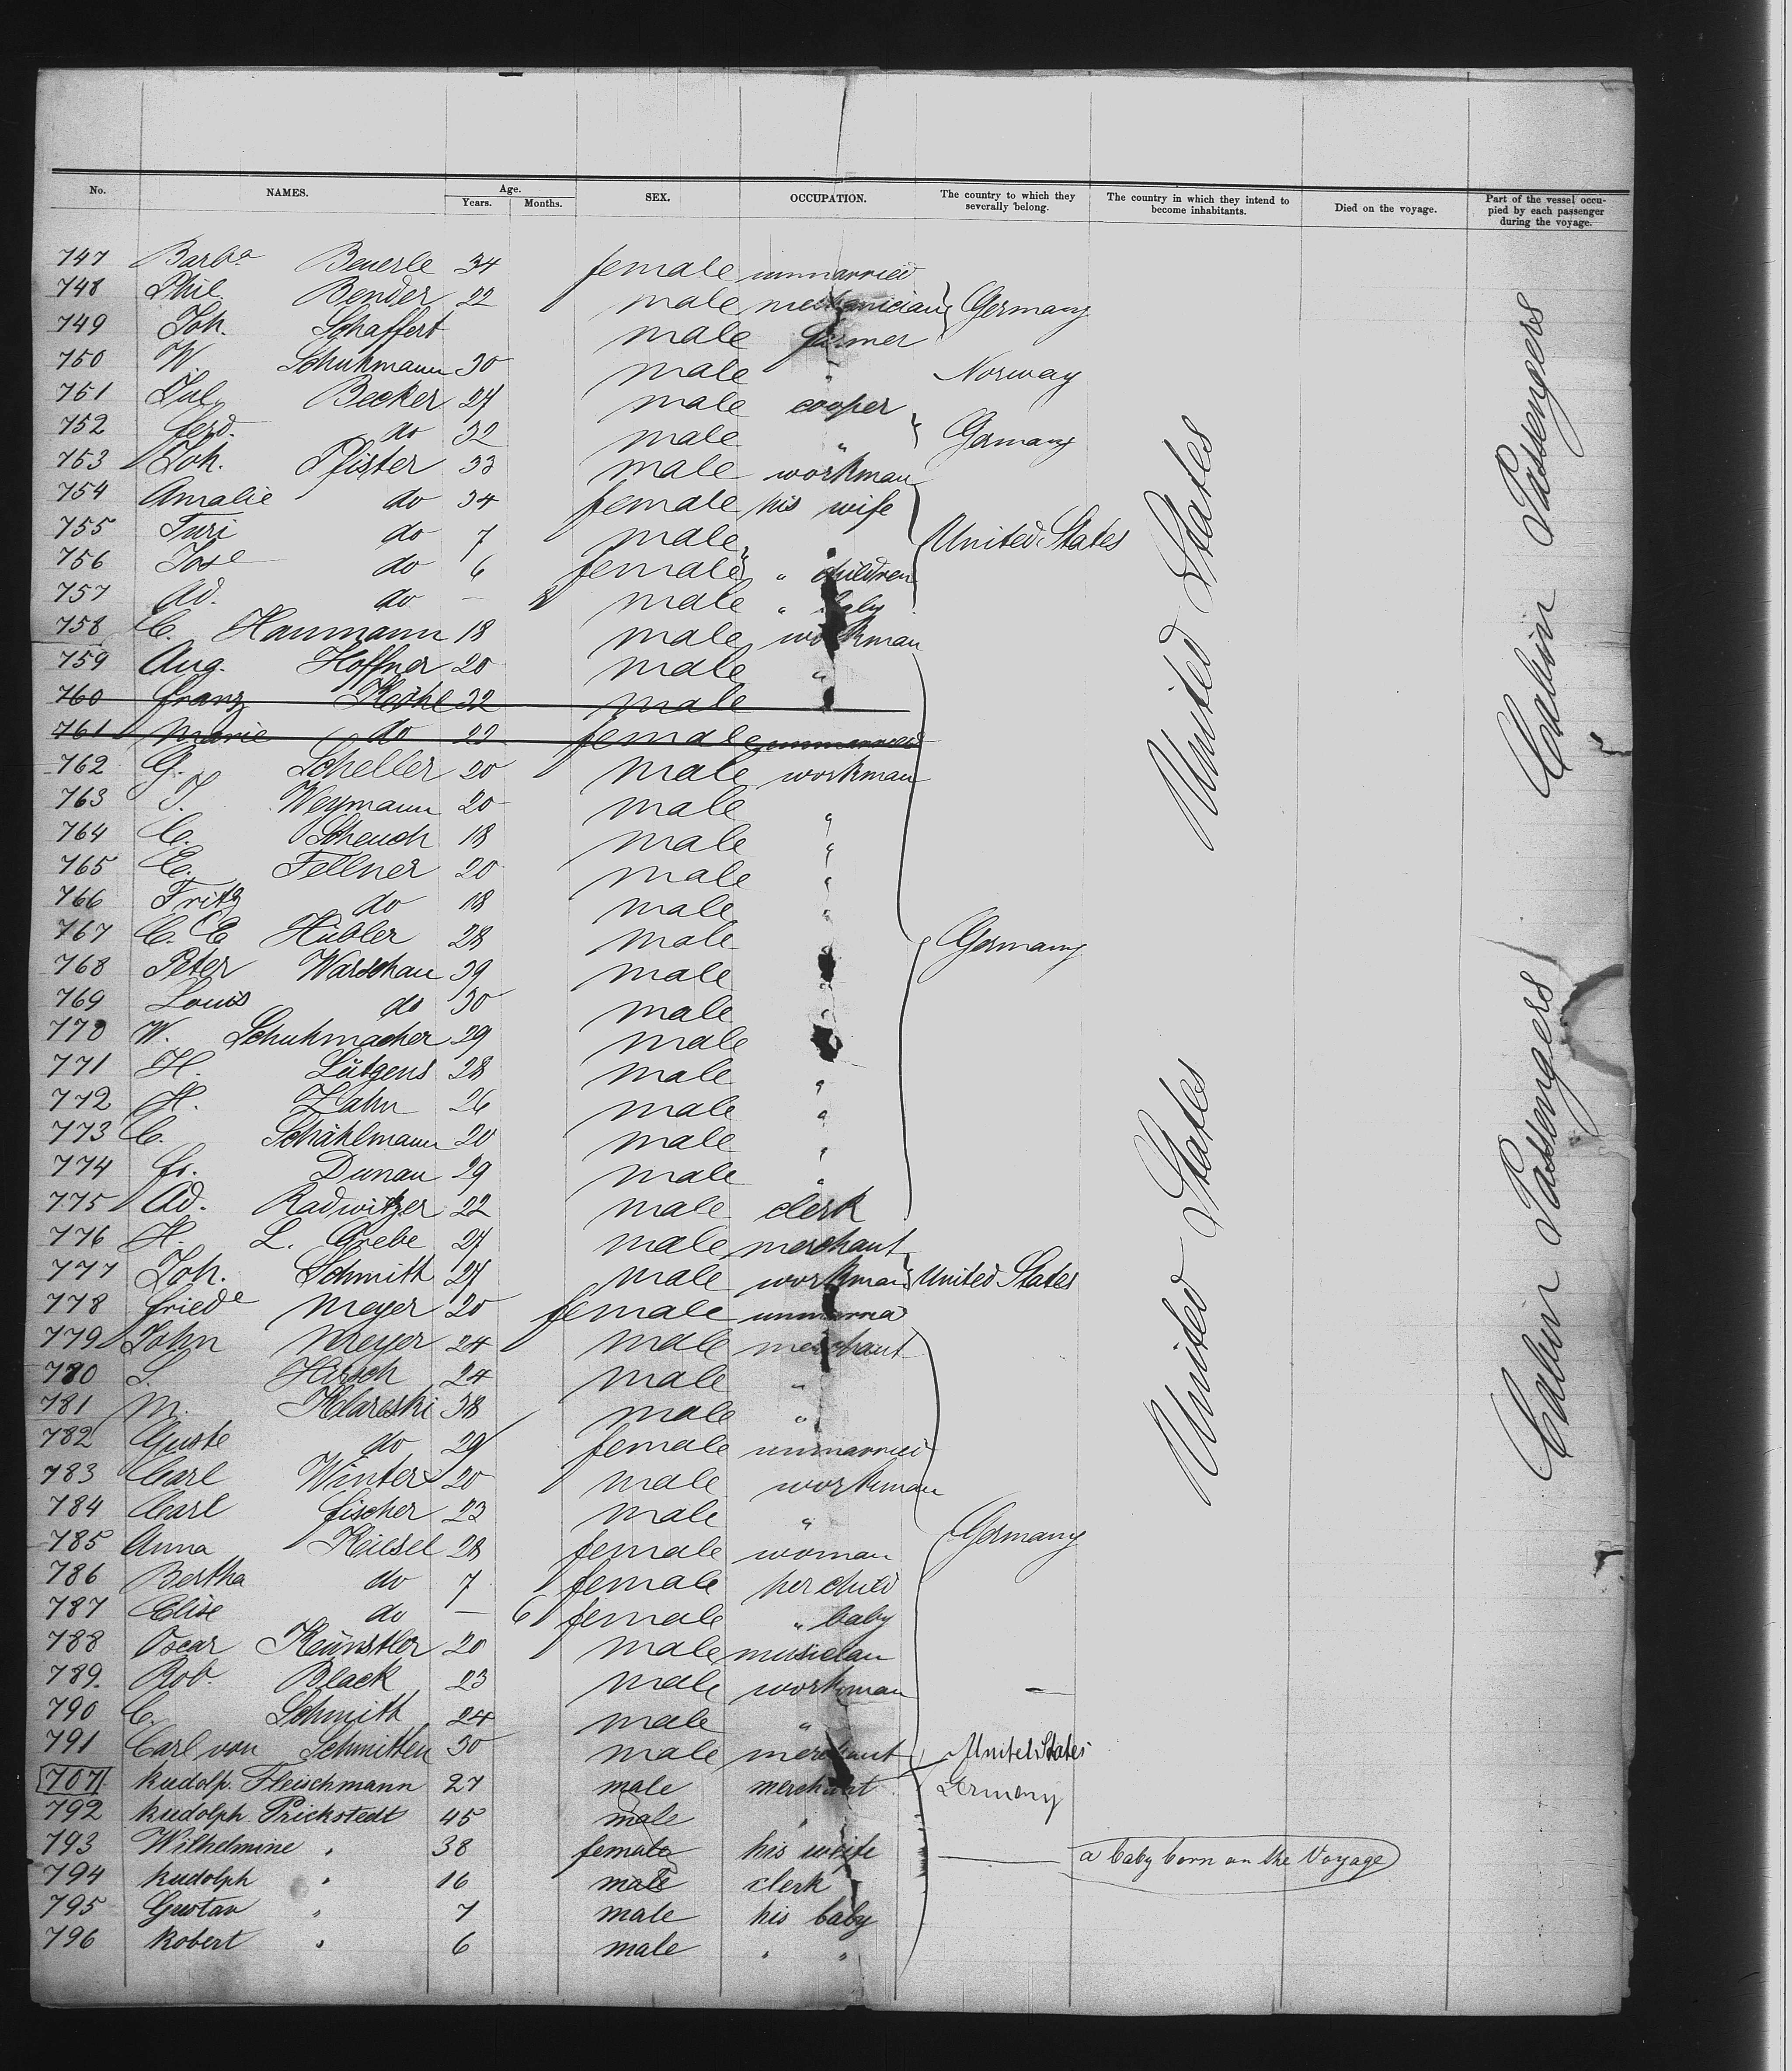 No. NAMES. Age. Years. Months. SEX. OCCUPATION. The country to which they severally belong. The country in which they intend to become inhabitants. Died on the voyage. Part of the vessel occupied by each passenger during the voyage.
747 Barba Beuerle 34 female unmarried
748 Phil. Bender 22 male mechanician Germany
749 Joh. Schaffert male farmer
750 W. Schuhmann 30 male " Norway
751 Jul. Becker 24 male cooper
752 Ferd. do 32 male " Germany
753 Joh. Pfister 33 male workman
754 Amalie do 34 female his wife
755 Turi do 7 male United States
756 Jose do 6 female " children
757 Ad. do — male " baby
758 C. Haumann 18 male workman
759 Aug. Hoffner 20 male "
760 Franz 32 male
761 Marie do 22 female unmarried
762 G. Scheller 20 male workman
763 J. Weymann 20 male "
764 C. Scheuch 18 male "
765 E. Fellner 20 male "
766 Fritz do 18 male "
767 C. E. Hübler 28 male " Germany
768 Peter Warschau 39 male "
769 Louis do 30 male "
770 W. Schuhmacher 29 male
771 H. Lütgens 28 male "
772 H. Zahn 26 male "
773 C. Schählmann 20 male "
774 Fr. Dunau 29 male "
775 Ad. Radwitzer 22 male clerk
776 H. L. Grebe 27 male merchant
777 Joh. Schmith 27 male workman United States
778 Friede Meyer 20 female
779 John Meyer 24 male merchant
780 S. Hirsch 24 male "
781 M. Klareski 38 male "
782 Guste do 29 female unmarried
783 Carl Winter 20 male workman
784 Carl Fischer 23 male "
785 Anna Kiesel 28 female woman Germany
786 Bertha do 7 female her child
787 Elise do — 6 female " baby
788 Oscar Keünstler 20 male musician
789. Rob. Black 23 male workman —
790 C. Schmith 24 male "
791 Carl von Schmitten 30 male merchant United States
707 Rudolp. Fleischmann 27 male merchant Germany
792 Rudolph Prickstedt 45 male "
793 Wilhelmine " 38 female his wife — a baby born on the Voyage
794 Rudolph " 16 male clerk
795 Gustav " 7 male his baby
796 Robert " 6 male " "
United States
United States
Cabin Passengers
Cabin Passengers